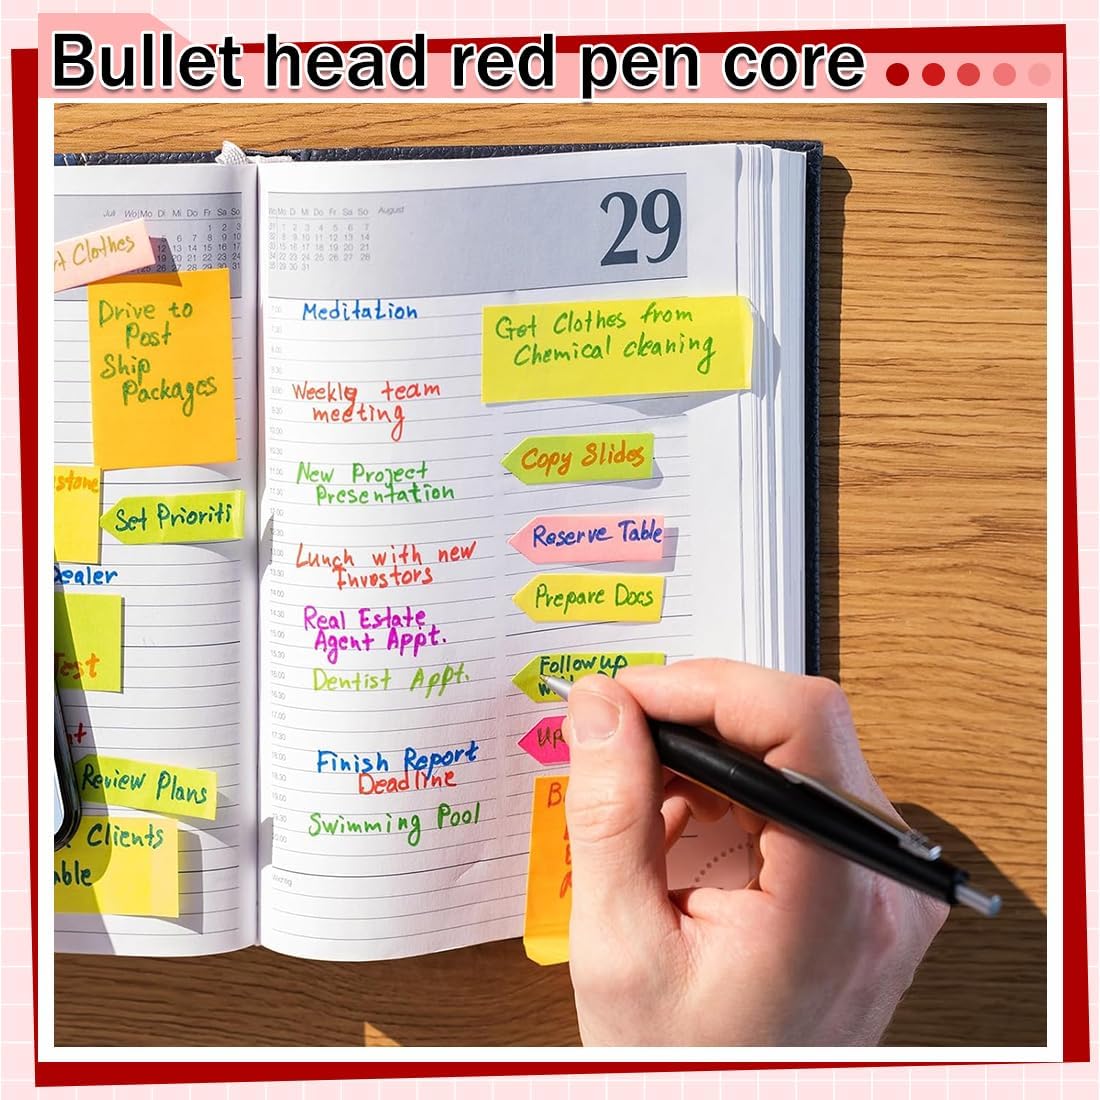 Bullet head red pen core
Juli Wo Mo Di Mi Do Fr Sa So
Clothes
Drive to
Post
Ship
Packages
Set Prioriti
Dealer
Test
Review Plans
Clients
Wo Mo Di Mi Do Fr Sa So August
29
Meditation
Weekly team
meeting
New Project
Presentation
Lunch with new
Investors
Real Estate
Agent Appt.
Dentist Appt.
Finish Report
Deadline
Swimming Pool
Get Clothes from
Chemical cleaning
Copy Slides
Reserve Table
Prepare Docs
Follow up
UP